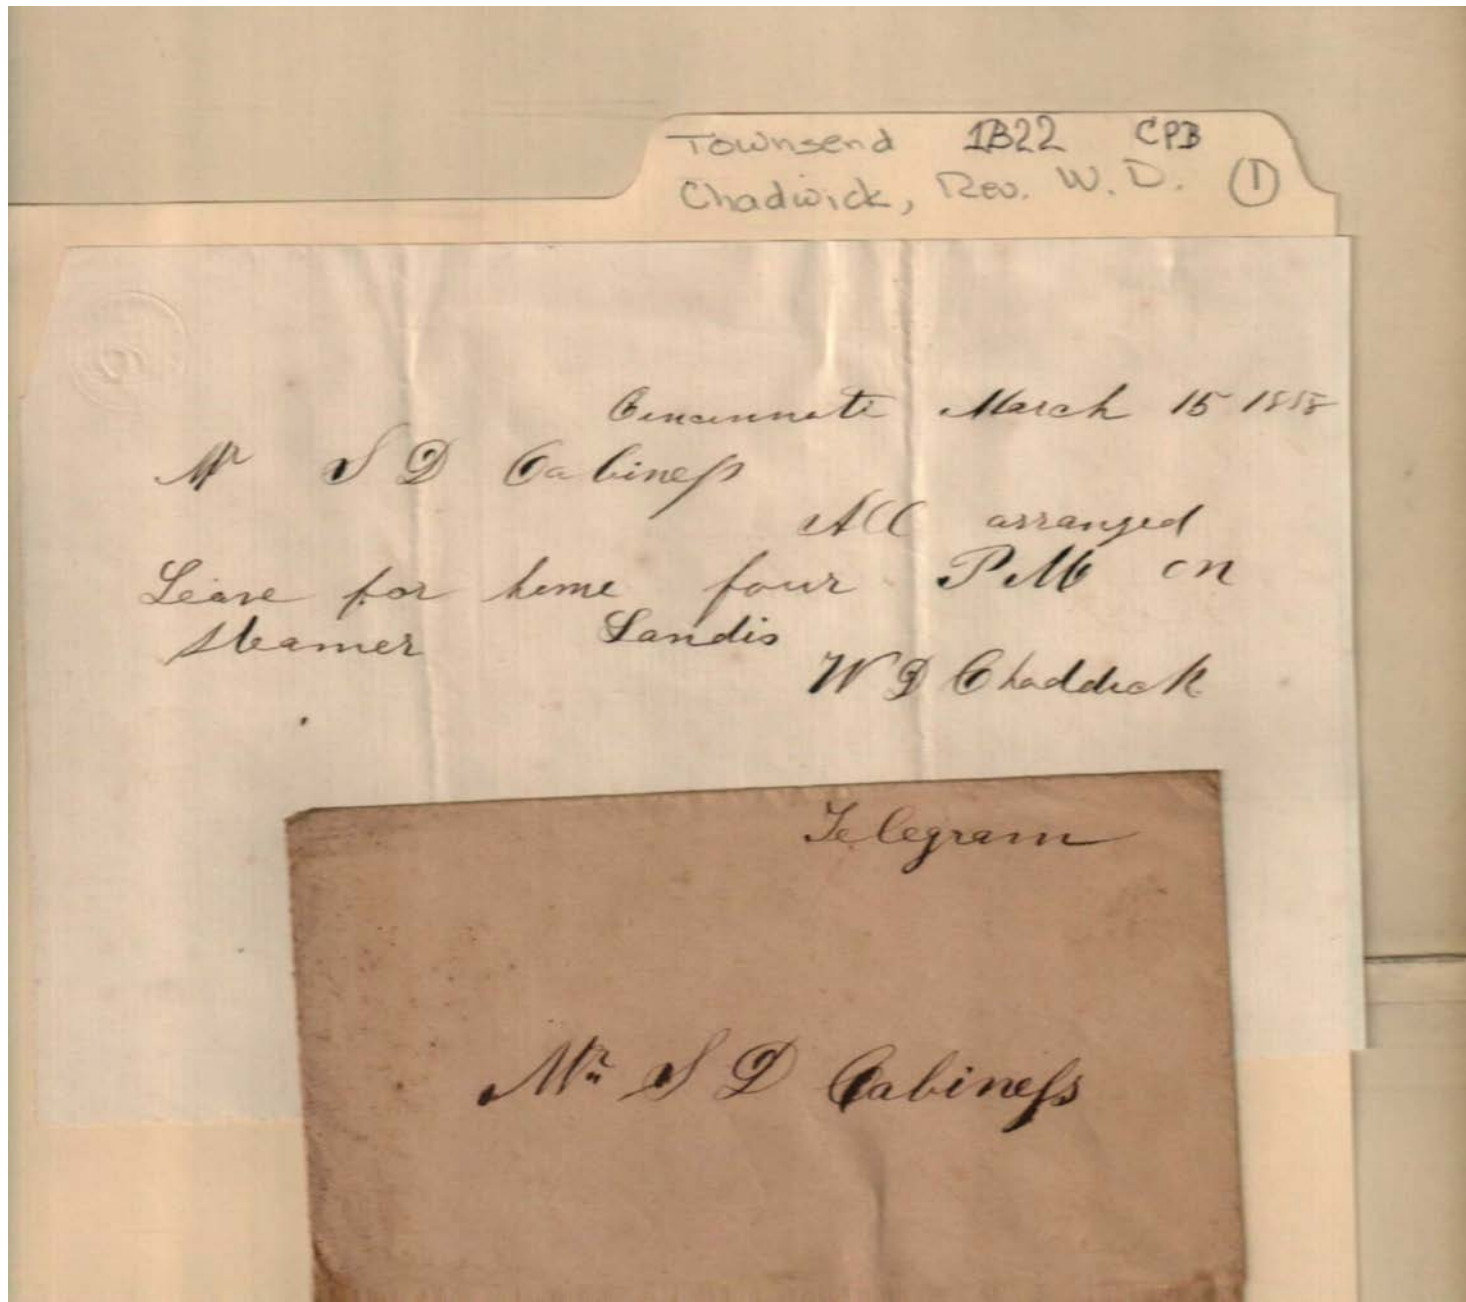 Townsend 1B22 CPB
Chadwick, Rev. W. D. 1
Cincinnati March 15 1858
Mr S D Cabiness
All arranged
Leave for home four PM on
steamer Landis
W D Chaddick
Telegram
Mr S D Cabiness